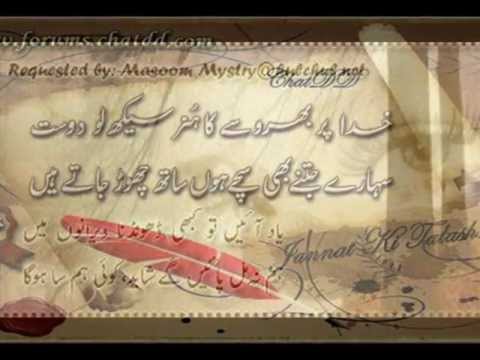 w.forums.chatdd.com
Requested by: Masoom Mystry@bulchul.net
ChatDD
خدا پر بھروسے کا ہُنر سیکھ لو دوست
سہارے جتنے بھی سچے ہوں ساتھ چھوڑ جاتے ہیں
یاد آئیں تو کبھی ڈھونڈنا ویرانوں میں
Jannat Ki Talash
ہم نہ مل پائیں گے شاید، کوئی ہم سا ہوگا